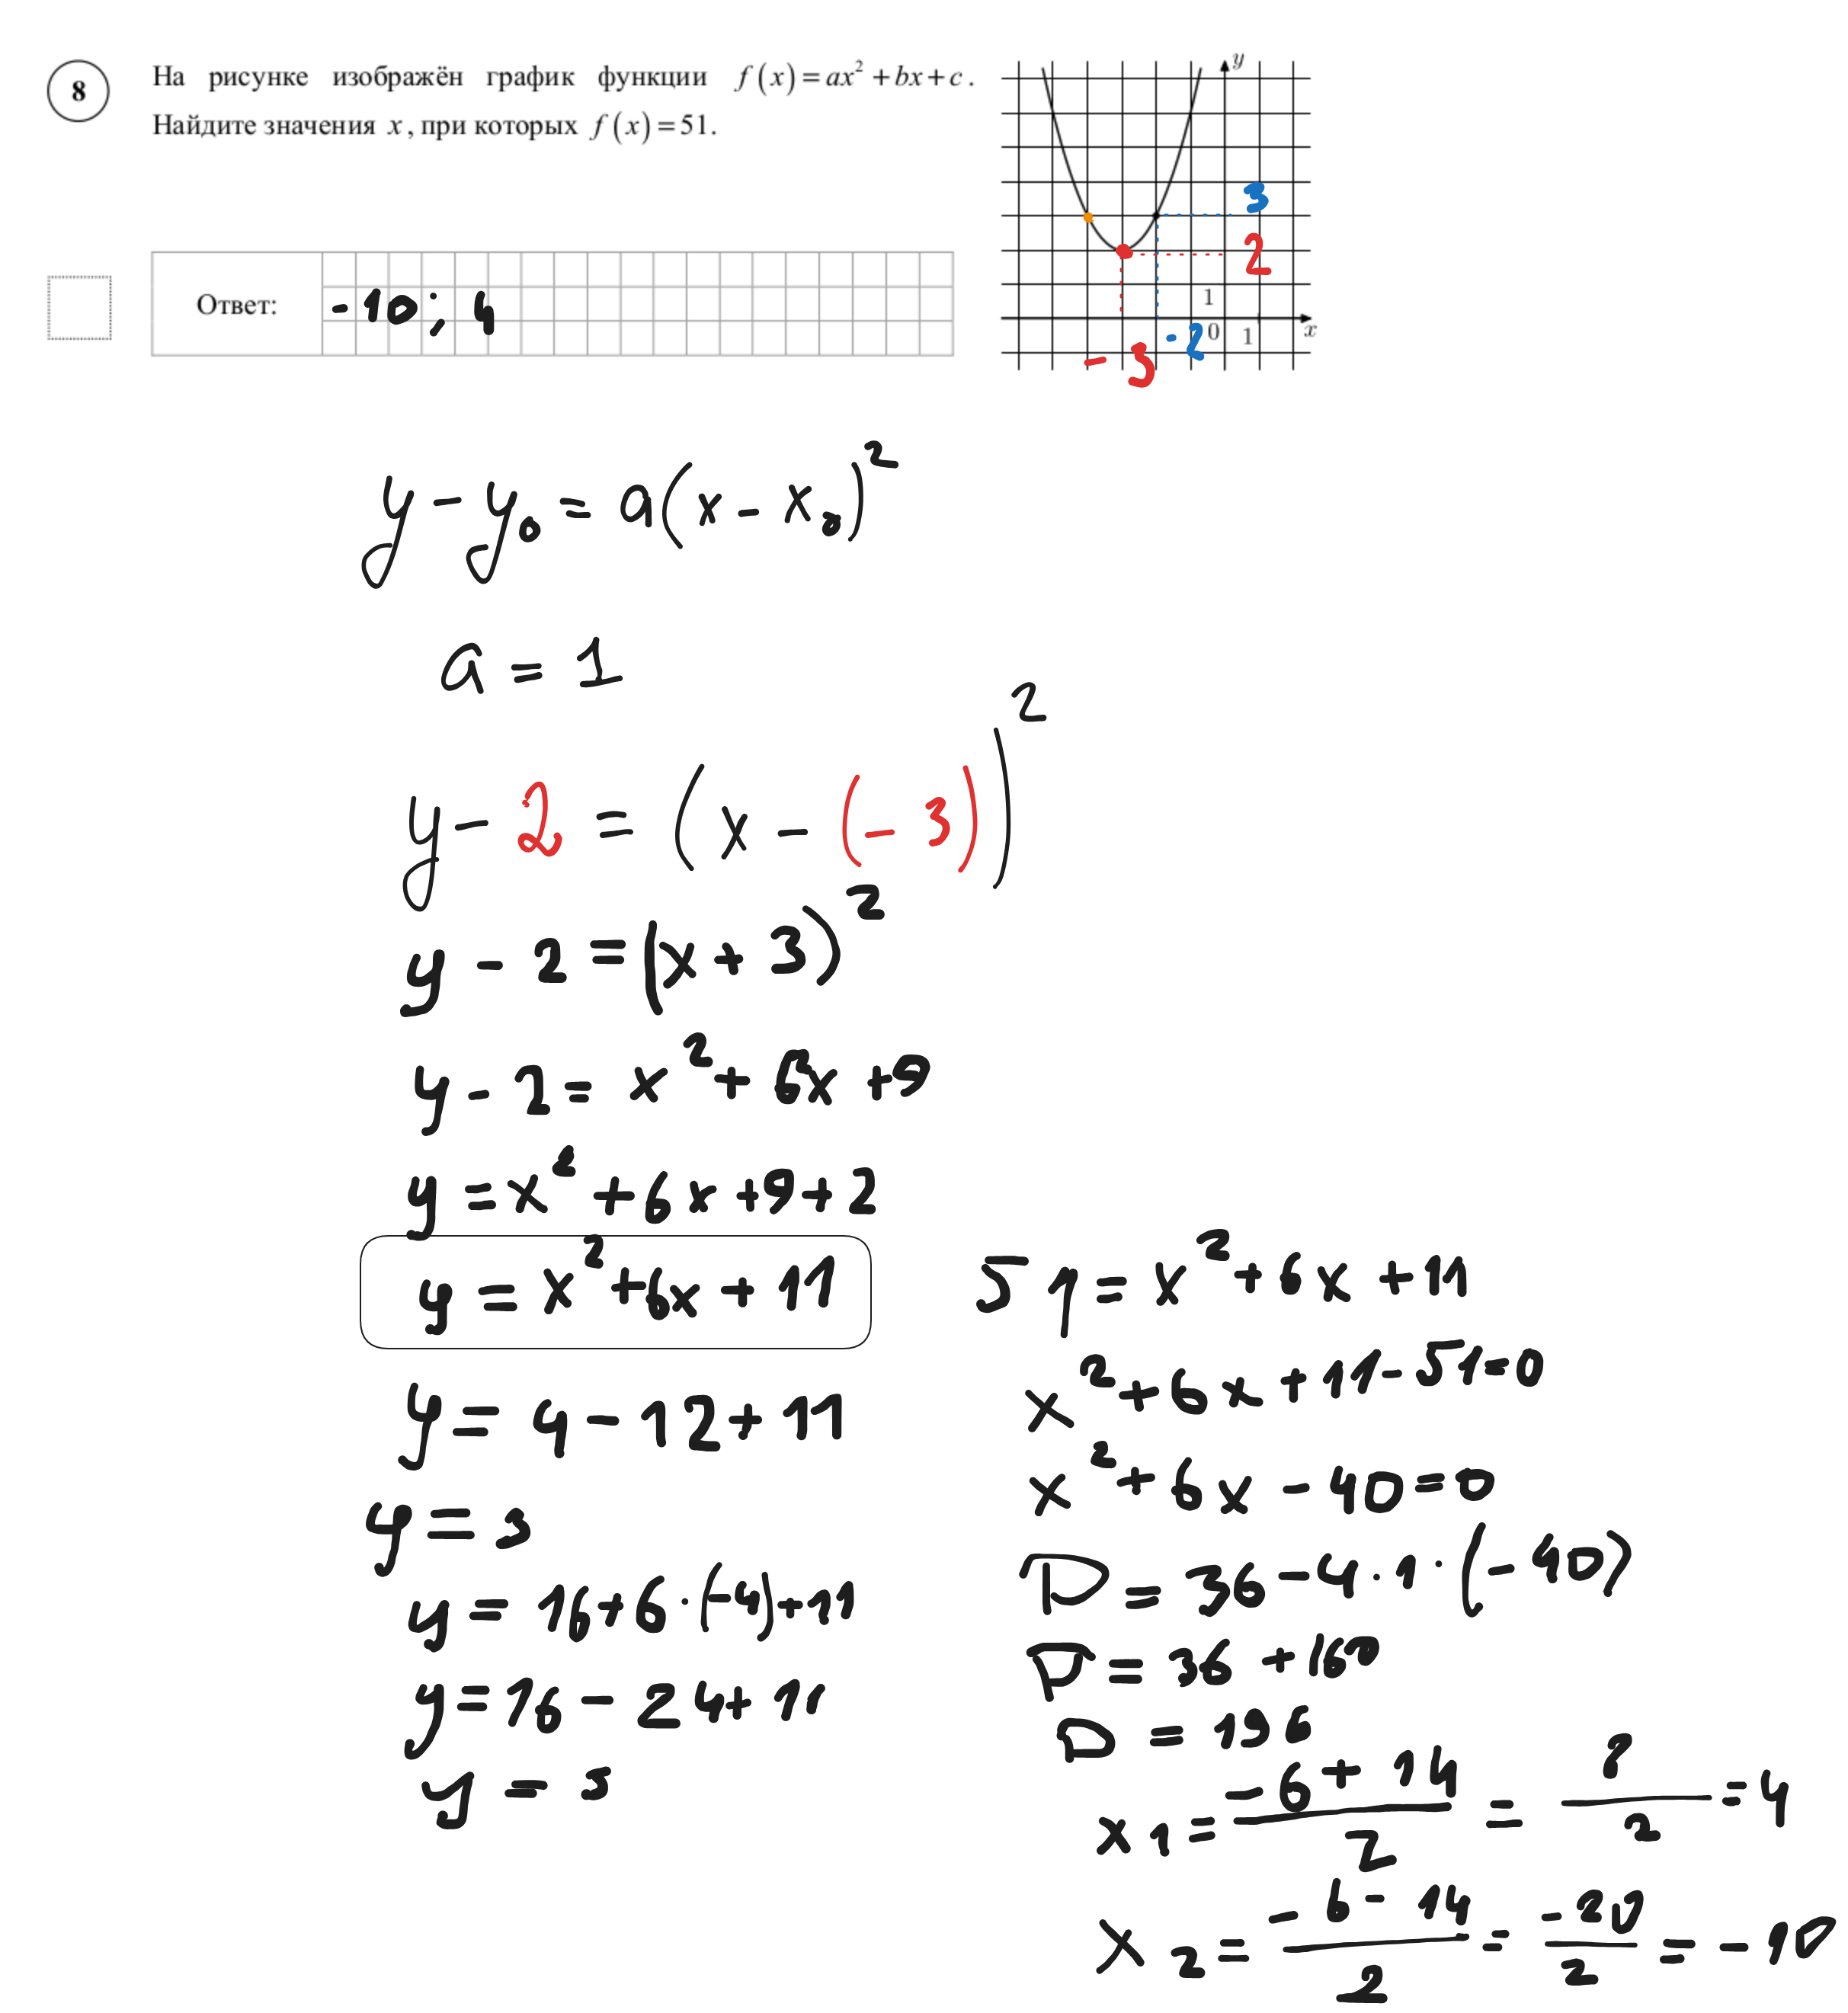 8
На рисунке изображён график функции f(x)=ax²+bx+c.
Найдите значения x, при которых f(x)=51.
y
3
2
1
0
1
x
-2
-3
Ответ:
-10; 4
y - y₀ = a(x - x₀)²
a = 1
y - 2 = (x - (-3))²
y - 2 = (x + 3)²
y - 2 = x² + 6x + 9
y = x² + 6x + 9 + 2
y = x² + 6x + 11
y = 4 - 12 + 11
y = 3
y = 16 + 6 · (-4) + 11
y = 16 - 24 + 11
y = 3
51 = x² + 6x + 11
x² + 6x + 11 - 51 = 0
x² + 6x - 40 = 0
D = 36 - 4 · 1 · (-40)
D = 36 + 160
D = 196
x1 = (-6 + 14)/2 = 8/2 = 4
x2 = (-6 - 14)/2 = -20/2 = -10